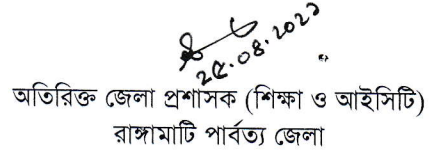 ২৫.০৪.২০২১
অতিরিক্ত জেলা প্রশাসক (শিক্ষা ও আইসিটি)
রাঙ্গামাটি পার্বত্য জেলা